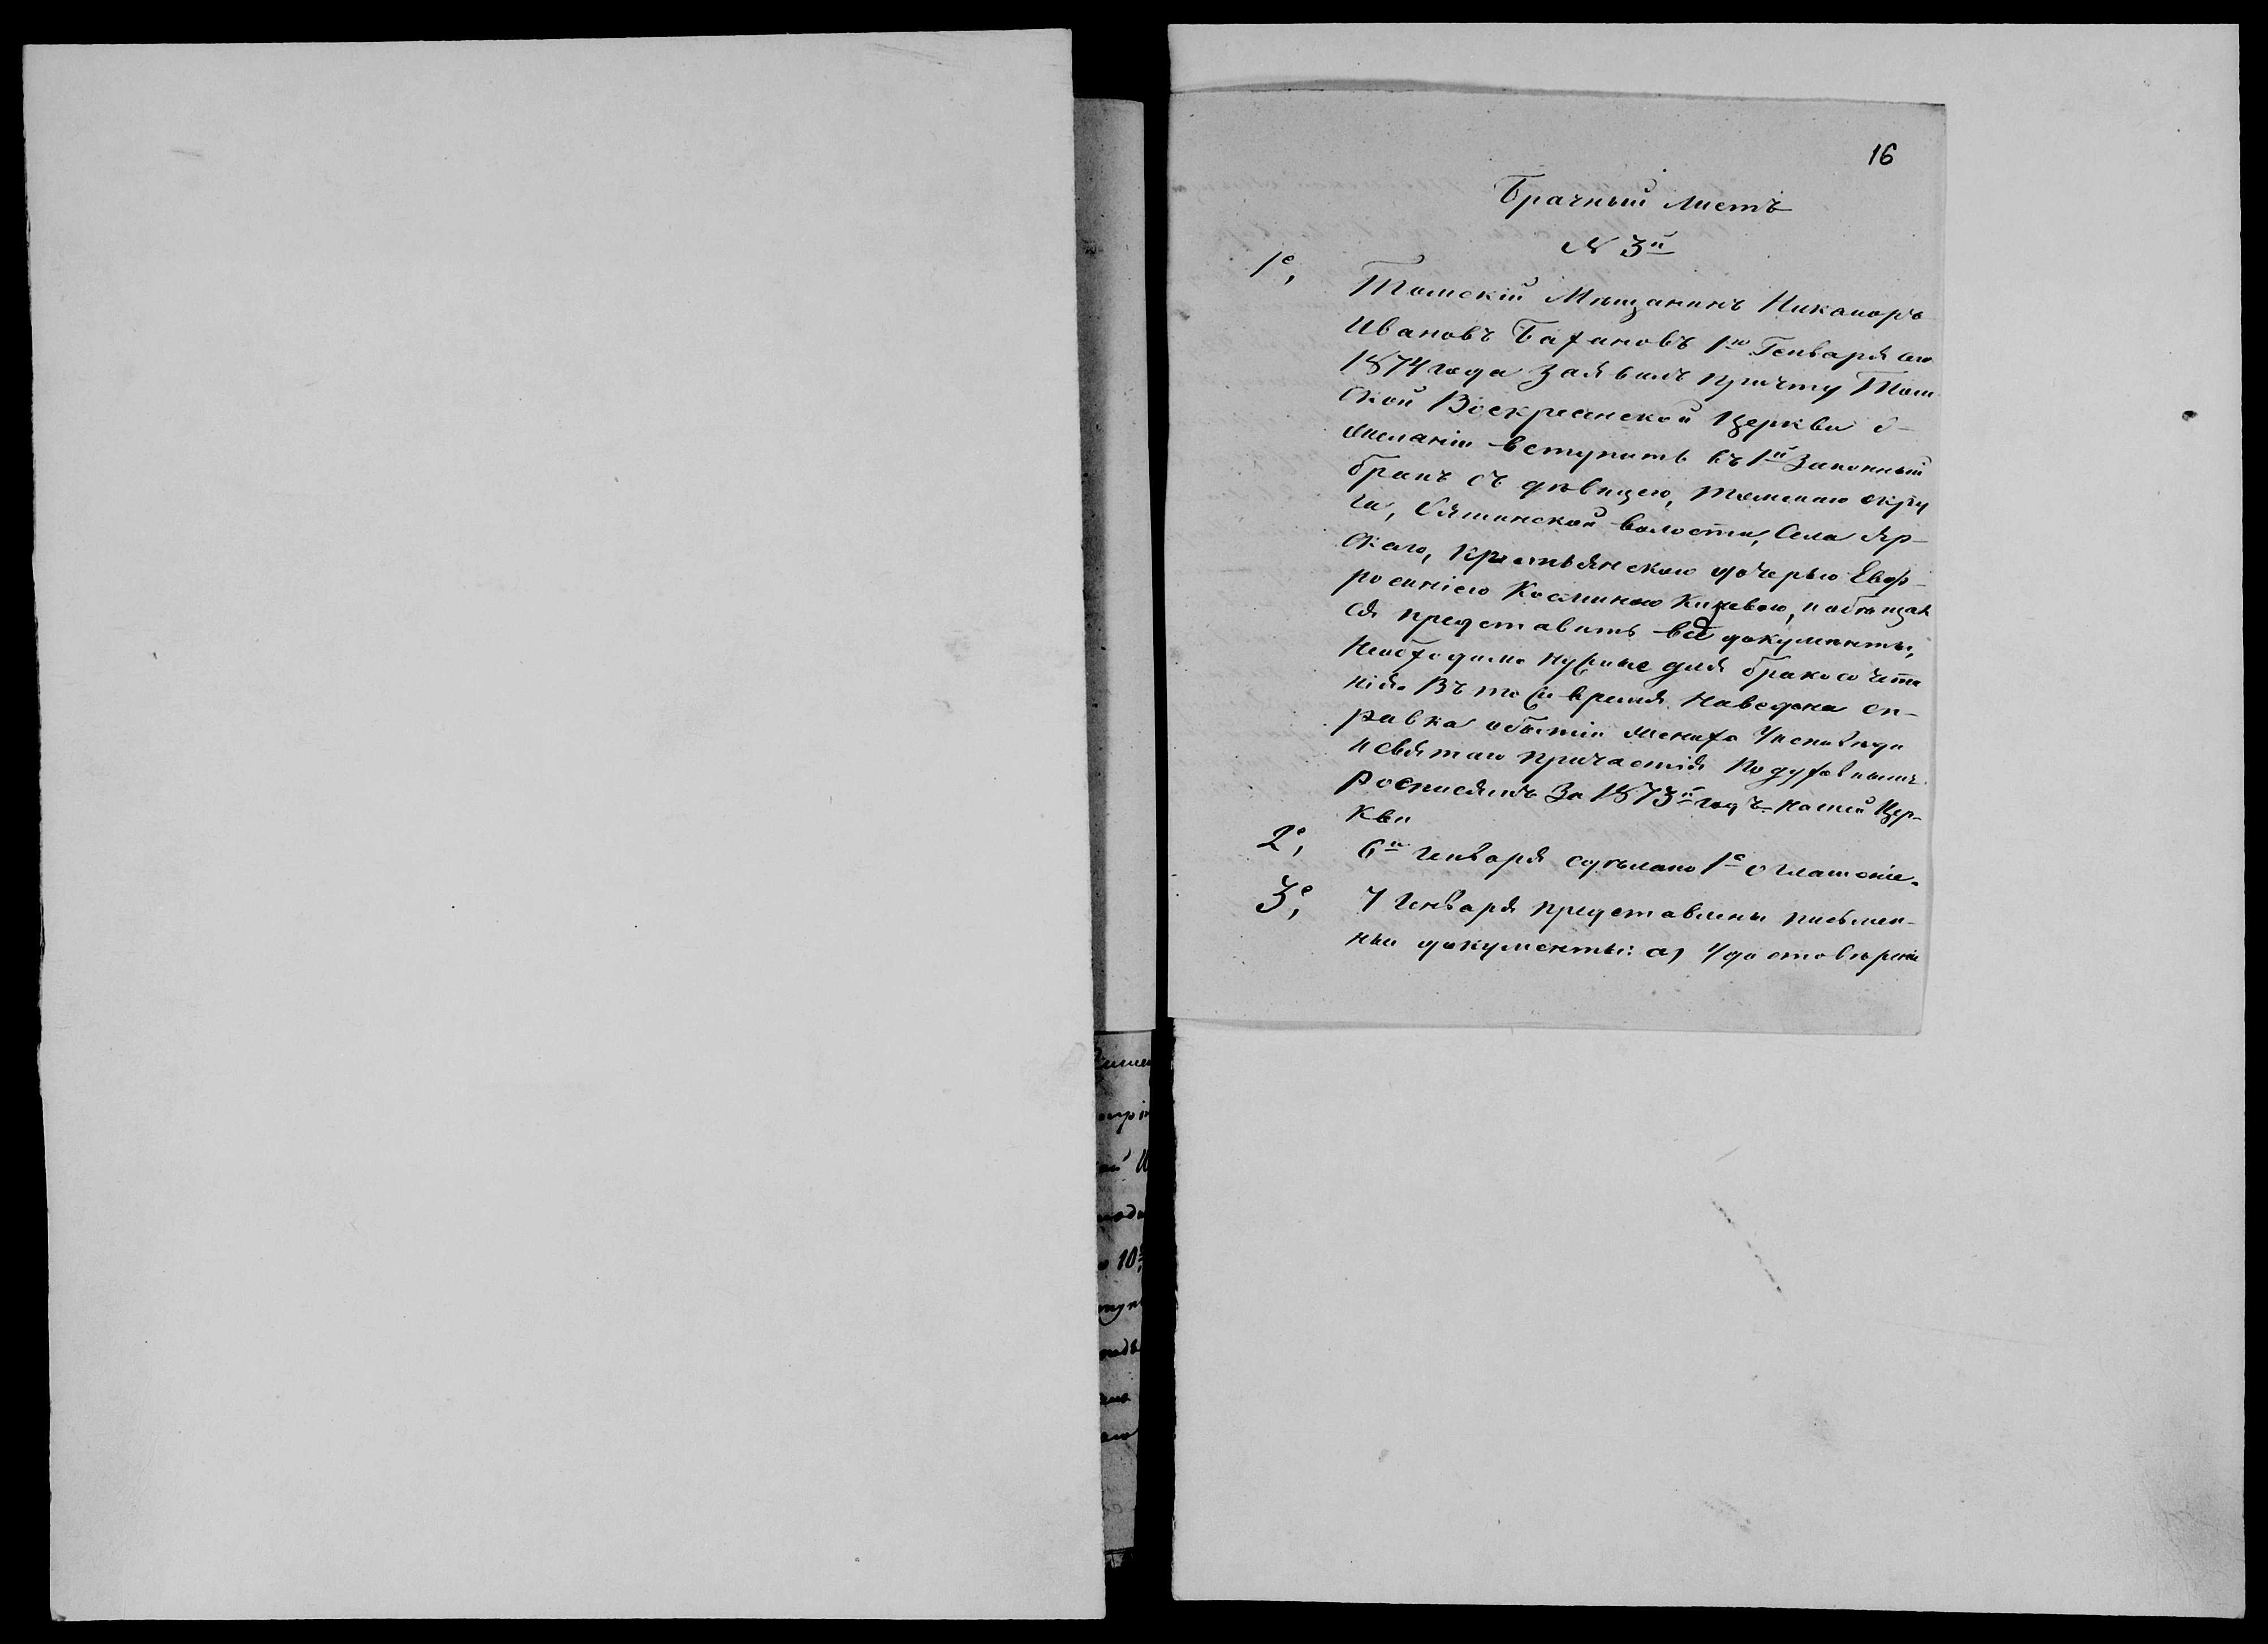 16
Брачный листъ
№ 3й
1е, Томскій Мѣщанинъ Никаноръ
Ивановъ Бахановъ 1го Генваря сего
1874 года заявилъ причту Том
ской Воскресенской Церкви о
желаніи вступить въ 1й Законный
бракъ съ дѣвицею, томскаго окру
га, волости, Села Яр-
скаго, крестьянскою дочерью Евф-
росиніею Косминою и обѣщал
ся представить все документы,
необходимо нужные для бракосочета
нія. Въ то же время наведена сп-
равка о бытіи жениха у исповѣди
и святаго причастія по духовнымъ
росписямъ за 1873й годъ нашей Цер-
кви
2е, 6го Генваря сдѣлано 1е оглашеніе.
3е, 7 Генваря представлены письмен-
ные документы: а, Удостовѣреніе
10